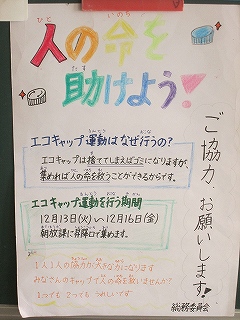 人の命を
ひと いのち
助けよう!
たす
ご協力、お願いします!!
エコキャップ運動はなぜ行うの?
エコキャップは捨ててしまえばゴミになりますが、
集めれば人の命を救うことができるからです。
エコキャップ運動を行う期間
12月13日(火)~12月16日(金)
朝放課に昇降口で集めます。
1人1人の協力が大きな力になります
みなさんのキャップで人の命を救いませんか?
1つでも2つでもうれしいです
総務委員会